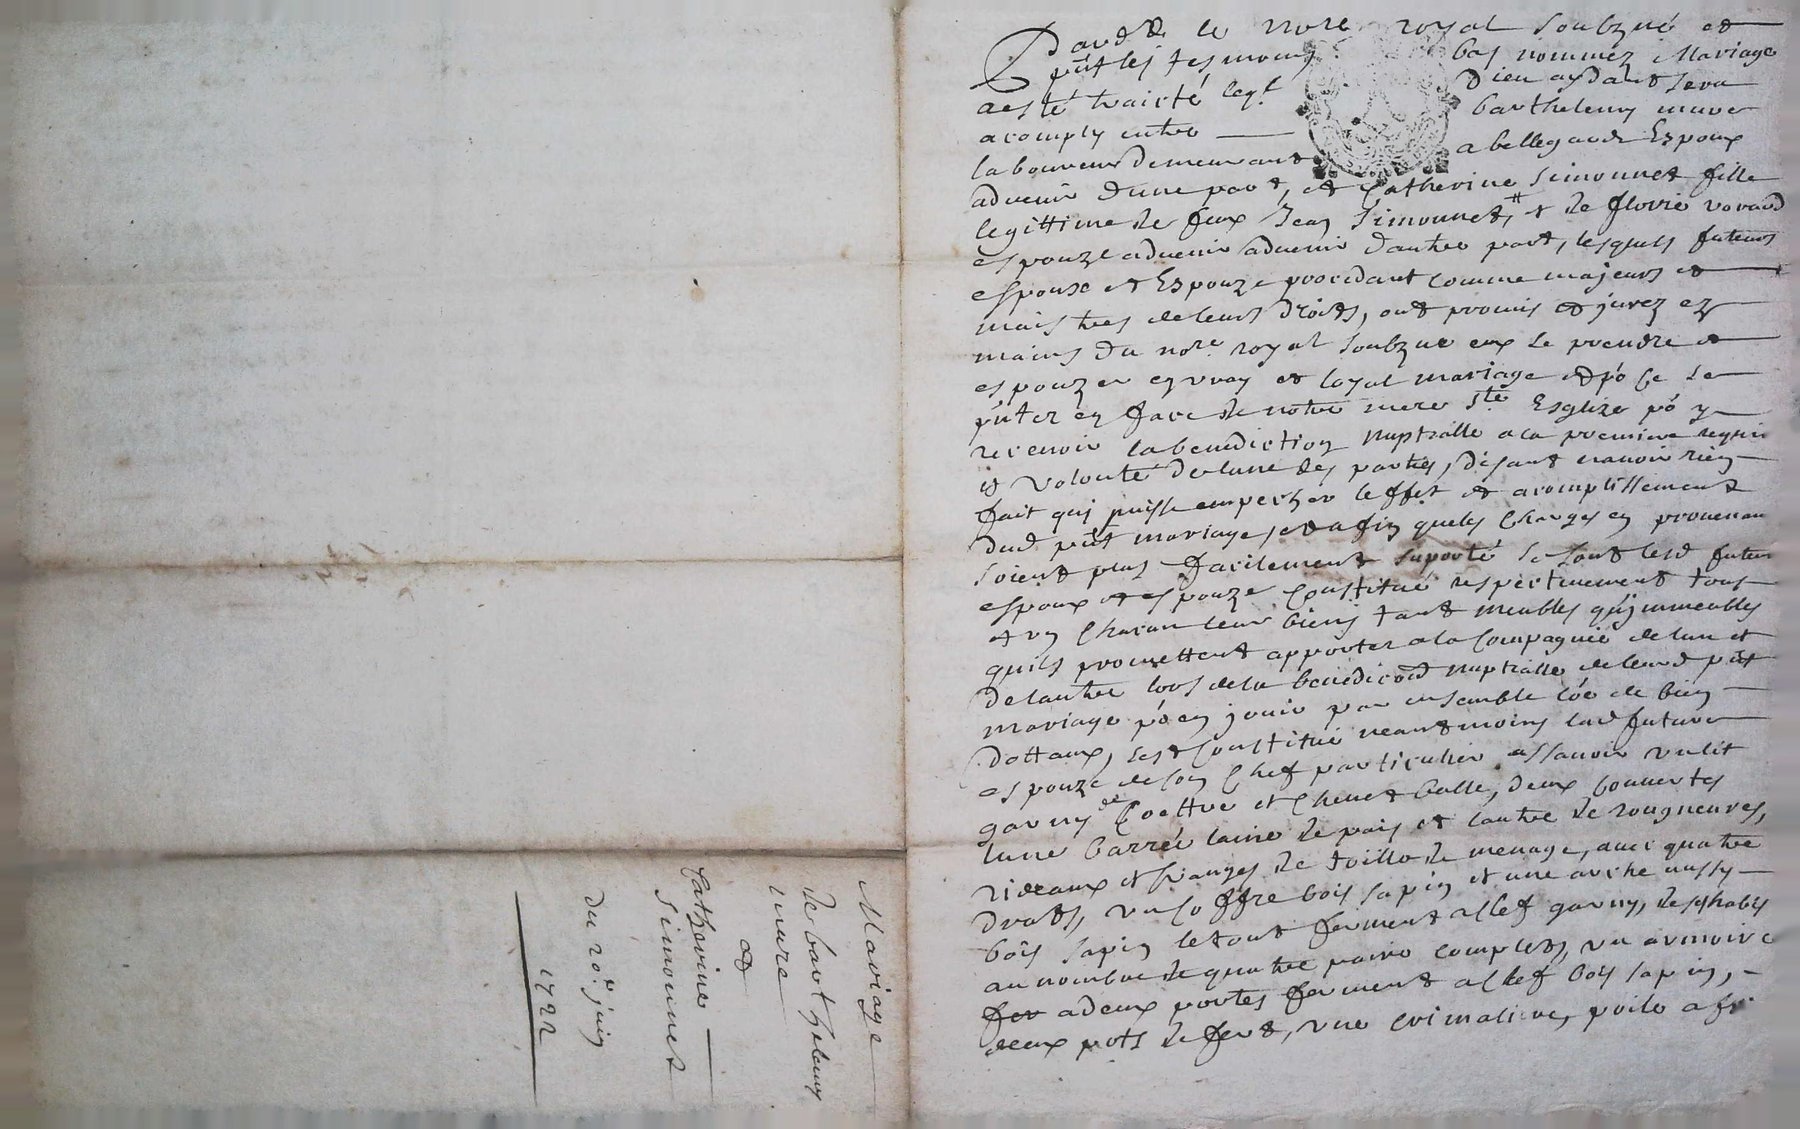 Pardt le nore royal soubzné et
pnt les tesmoins bas nommez Mariage
a esté traicté leql Dieu aydant sera
acomply entre Barthelemy mure
laboureur demeurant a bellegarde Espoux
advenir dune part, et Catherine Simonnet fille
legittime de feux Jean Simonnet, et de florie voraud
espouze advenir advenir dautre part, lesquels futeurs
espoux et Espouze procedant comme majeurs et
maistres de leurs droits, ont promis et jurez ez
mains du nore royal soubzne eux se prendre et
espouzer en vray et loyal mariage et po ce se
pnter en face de notre mere Ste Esglize po y
recevoir la benediction nuptialle a la premiere requis
et volonté de lune des parties, disant navoir rien
fait quy puisse empescher leffet et acomplissement
dud pnt mariage, et afin que les charges en provenan
soient plus facilement suporté se sont lesd futeur
espoux et espouze constitué respectivement tous
et un chacun leur biens tant meubles quymmeubles
quils promettent apporter a la compagnie de lun et
de lautre lors de la benedicon nuptialle de leurd pnt
mariage po en jouir par ensemble coe de bien
dottaux, sest constitué neantmoins lad future
espouze de son chef particulier assavoir un lit
garny de Coettre et chevet balle, deux couvertes
lune barrée laine de pais et lautre de rougneures,
rideaux et franges de toille de menage, avec quatre
draps, un coffre bois sapin et une arche aussy
bois sapin le tout ferment a clef garny, de ses habis
au nombre de quatre paire complets, un armoire
fer a deux portes ferment a clef bois sapin,
deux pots de fert, une crimaliere, poile a fr
Mariage
de barthelemy
mure
et
Catherine
Simonnet
du 20e juin
1722